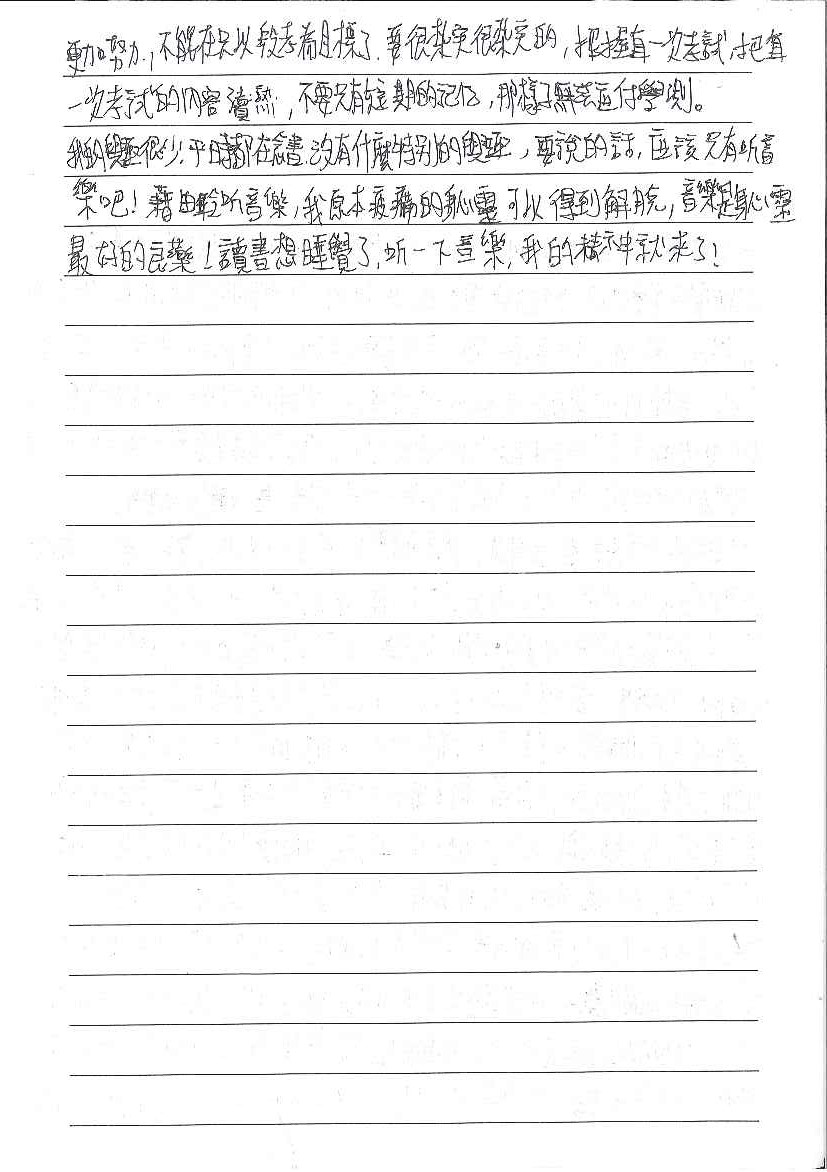 更加努力，不能在只以段考為目標了。要很紮實很紮實的，把握每一次考試，把每
一次考試的內容讀熟，不要只有短期的記憶，那樣子無法應付學測。
我的興趣很少，平日都在念書，沒有什麼特別的興趣，要說的話，應該只有听音
樂吧！藉由聆听音樂，我原本疲憊的心靈可以得到解脫，音樂是心靈
最好的良藥！讀書想睡覺了，听一下音樂，我的精神就來了！